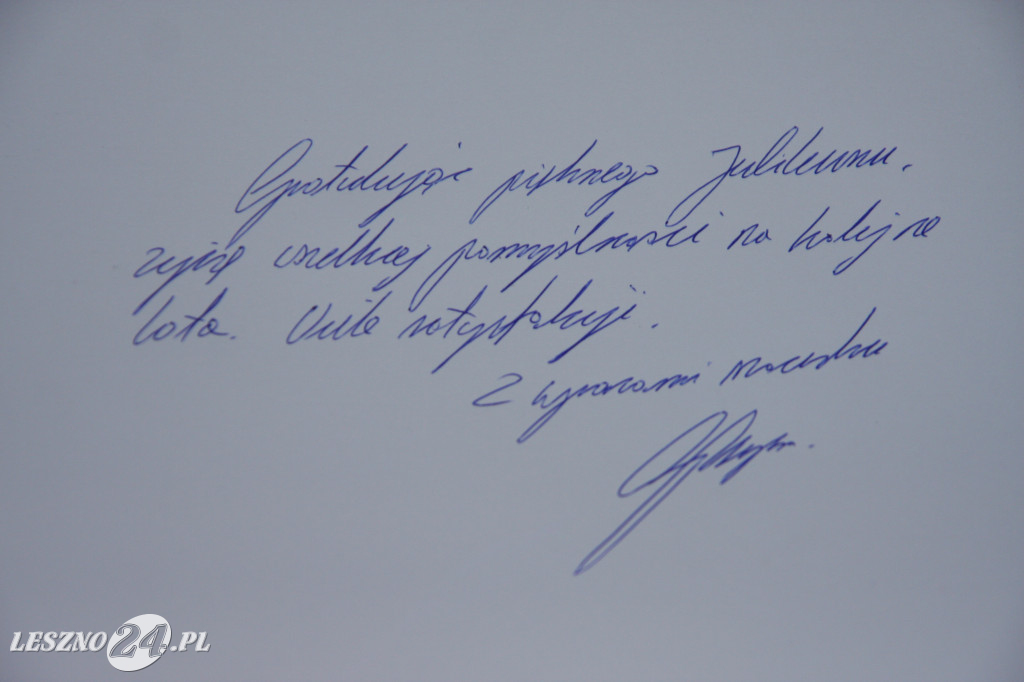 Gratulując pięknego Jubileuszu,
życzę wszelkiej pomyślności na kolejne
lata. Wiele satysfakcji.
Z wyrazami szacunku
LESZNO24.PL